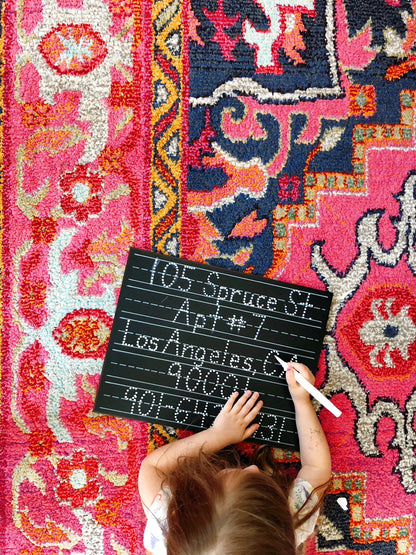 105 Spruce St
Apt #7
Los Angeles, CA
90001